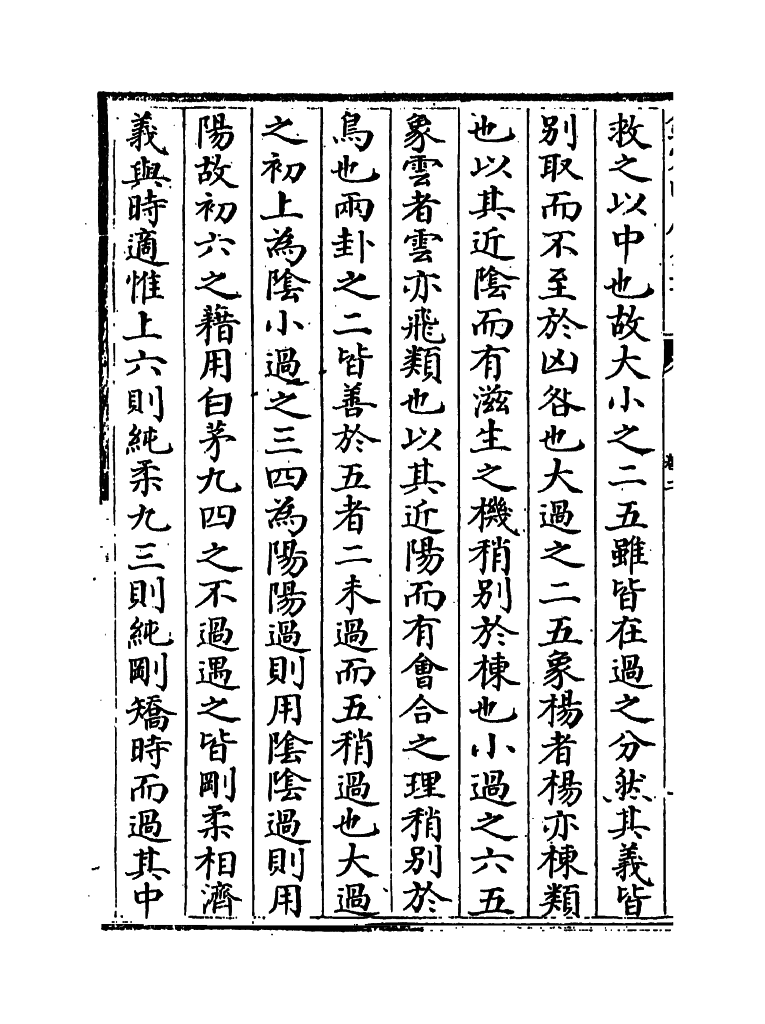 救之以中也故大小之二五雖皆在過之分然其義皆
別取而不至於凶咎也大過之二五象楊者楊亦棟類
也以其近陰而有滋生之機稍别於棟也小過之六五
象雲者雲亦飛類也以其近陽而有會合之理稍别於
鳥也兩卦之二皆善於五者二未過而五稍過也大過
之初上為陰小過之三四為陽陽過則用陰陰過則用
陽故初六之藉用白茅九四之不過遇之皆剛柔相濟
義與時適惟上六則純柔九三則純剛矯時而過其中